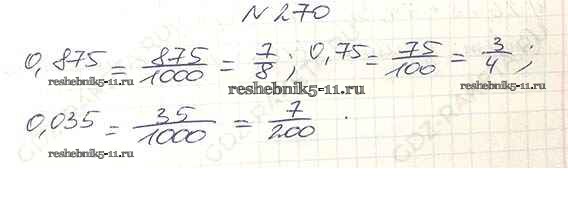 N 270
0,875 = 875/1000 = 7/8 ; 0,75 = 75/100 = 3/4 ;
reshebnik5-11.ru reshebnik5-11.ru reshebnik5-11.ru
0,035 = 35/1000 = 7/200 .
reshebnik5-11.ru reshebnik5-11.ru